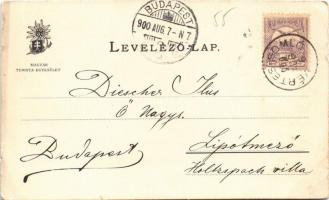 BUDAPEST
900 AUG. 7 - N 7
55
LEVELEZŐ-LAP.
MAGYAR
TURISTA EGYESÜLET
Diescher Ilus
Ő Nagys.
Budapest
Lipótmező
villa